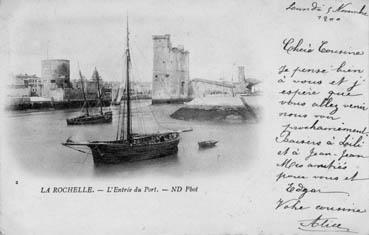 Lundi 5 Novembre
1900
Chère Cousine
Je pense bien
à vous et j'
espère que
vous allez venir
nous voir
prochainement
Baisers à Lili
et à Jean-Jean
Mes amitiés
pour vous et
Edgar
Votre cousine
Alice
2
LA ROCHELLE. — L'Entrée du Port. — ND Phot